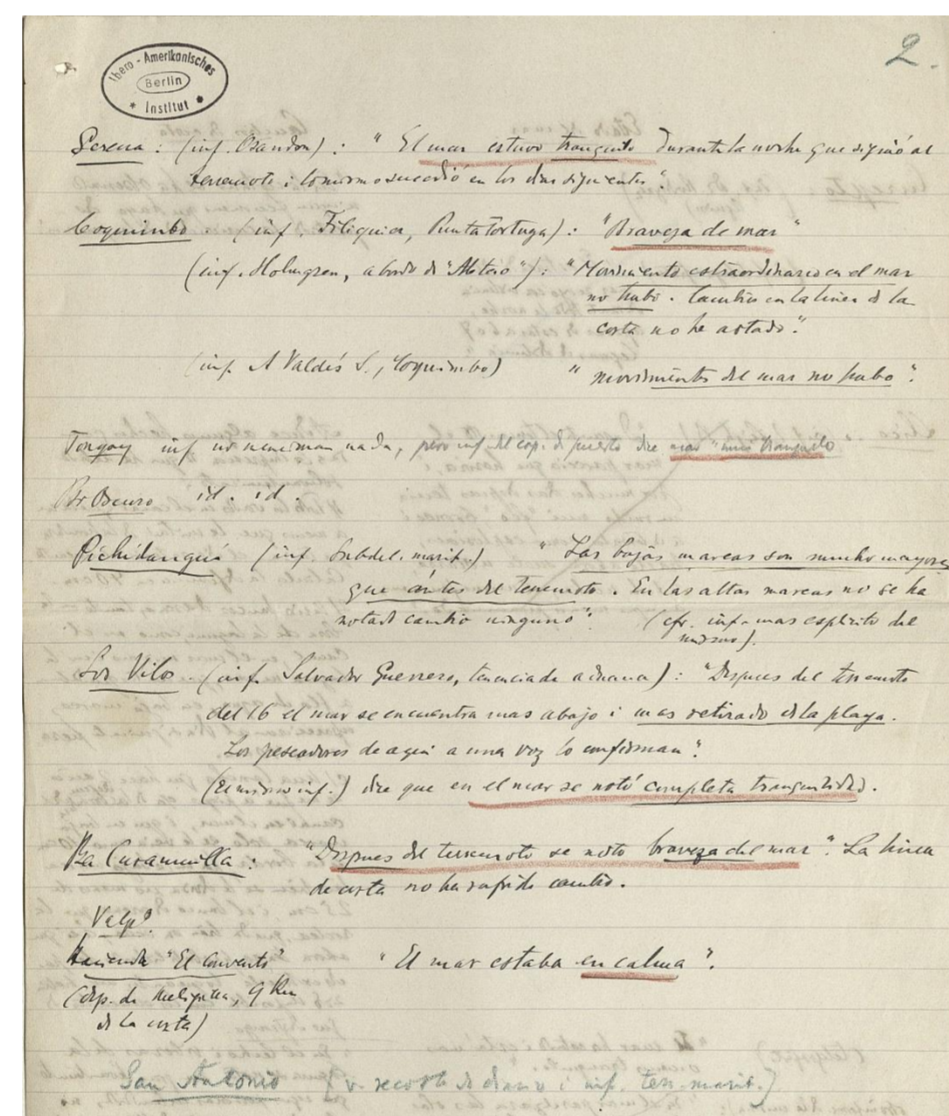 2.
Ibero-Amerikanisches
Berlin
* Institut *
Serena : (inf. Obandon) : " El mar estuvo tranquilo durante la noche que siguió al
terremoto i lo mismo sucedió en los dias siguientes".
Coquimbo . (inf. Filiquia, Punta Tortuga) : "Braveza de mar"
(inf. Holmgren, a bordo di "Abtao") : "Movimiento estraordinario en el mar
no hubo . Cambio en la linea d la
costa no he notado".
(inf. A Valdés S., Coquimbo) " movimientos del mar no hubo ".
Tongoy inf no mencionan nada, pero inf. del cap. d puerto dice mar "muy tranquilo
Pto Oscuro id. id.
Pichidangui (inf. Subdel. marit.) " Las bajas mareas son mucho mayores
que ántes del terremoto . En las altas mareas no se ha
notado cambio ninguno". (cfr. inf. mas esplícito del
mismo).
Los Vilos . (inf. Salvador Guerrero, tenencia de aduana) : "Despues del terremoto
del 16 el mar se encuentra mas abajo i mas retirado d la playa.
Los pescadores de aquí a una voz lo confirman".
(El mismo inf.) dice que en el mar se notó completa tranquilidad.
Pta Curaumilla : "Despues del terremoto se noto braveza del mar". La linea
de costa no ha sufrido cambio.
Valpo.
Hacienda "El Convento" " El mar estaba en calma ".
(dep. de Melipilla, 9 Km
d la costa)
San Antonio (v. recorte de diario i inf. ten. marit.)